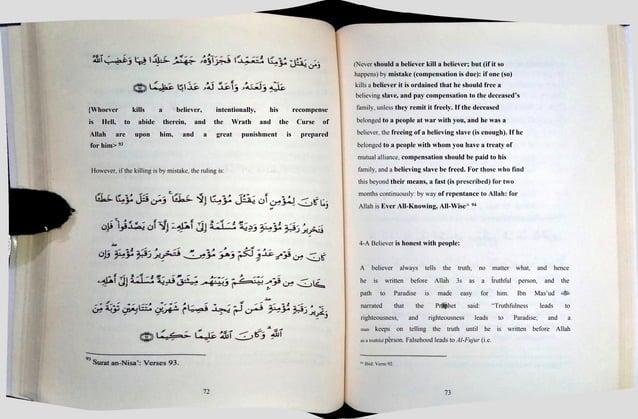 وَمَن يَقْتُلْ مُؤْمِنًا مُّتَعَمِّدًا فَجَزَآؤُهُۥ جَهَنَّمُ خَٰلِدًا فِيهَا وَغَضِبَ ٱللَّهُ
عَلَيْهِ وَلَعَنَهُۥ وَأَعَدَّ لَهُۥ عَذَابًا عَظِيمًا
{Whoever kills a believer, intentionally, his recompense
is Hell, to abide therein, and the Wrath and the Curse of
Allah are upon him, and a great punishment is prepared
for him> 93
However, if the killing is by mistake, the ruling is:
وَمَا كَانَ لِمُؤْمِنٍ أَن يَقْتُلَ مُؤْمِنًا إِلَّا خَطَـًٔا ۚ وَمَن قَتَلَ مُؤْمِنًا خَطَـًٔا
فَتَحْرِيرُ رَقَبَةٍ مُّؤْمِنَةٍ وَدِيَةٌ مُّسَلَّمَةٌ إِلَىٰٓ أَهْلِهِۦٓ إِلَّآ أَن يَصَّدَّقُوا۟ ۚ فَإِن
كَانَ مِن قَوْمٍ عَدُوٍّ لَّكُمْ وَهُوَ مُؤْمِنٌ فَتَحْرِيرُ رَقَبَةٍ مُّؤْمِنَةٍ ۖ وَإِن
كَانَ مِن قَوْمٍۭ بَيْنَكُمْ وَبَيْنَهُم مِّيثَٰقٌ فَدِيَةٌ مُّسَلَّمَةٌ إِلَىٰٓ أَهْلِهِۦ
وَتَحْرِيرُ رَقَبَةٍ مُّؤْمِنَةٍ ۖ فَمَن لَّمْ يَجِدْ فَصِيَامُ شَهْرَيْنِ مُتَتَابِعَيْنِ تَوْبَةً مِّنَ
ٱللَّهِ ۗ وَكَانَ ٱللَّهُ عَلِيمًا حَكِيمًا
93 Surat an-Nisa': Verses 93.
72
(Never should a believer kill a believer; but (if it so
happens) by mistake (compensation is due): if one (so)
kills a believer it is ordained that he should free a
believing slave, and pay compensation to the deceased's
family, unless they remit it freely. If the deceased
belonged to a people at war with you, and he was a
believer, the freeing of a believing slave (is enough). If he
belonged to a people with whom you have a treaty of
mutual alliance, compensation should be paid to his
family, and a believing slave be freed. For those who find
this beyond their means, a fast (is prescribed) for two
months continuously: by way of repentance to Allah: for
Allah is Ever All-Knowing, All-Wise^ 94
4-A Believer is honest with people:
A believer always tells the truth, no matter what, and hence
he is written before Allah 3s as a truthful person, and the
path to Paradise is made easy for him. Ibn Mas'ud
narrated that the Prophet said: "Truthfulness leads to
righteousness, and righteousness leads to Paradise; and a
man keeps on telling the truth until he is written before Allah
as a truthful person. Falsehood leads to Al-Fujur (i.e.
94 Ibid: Verse 92.
73